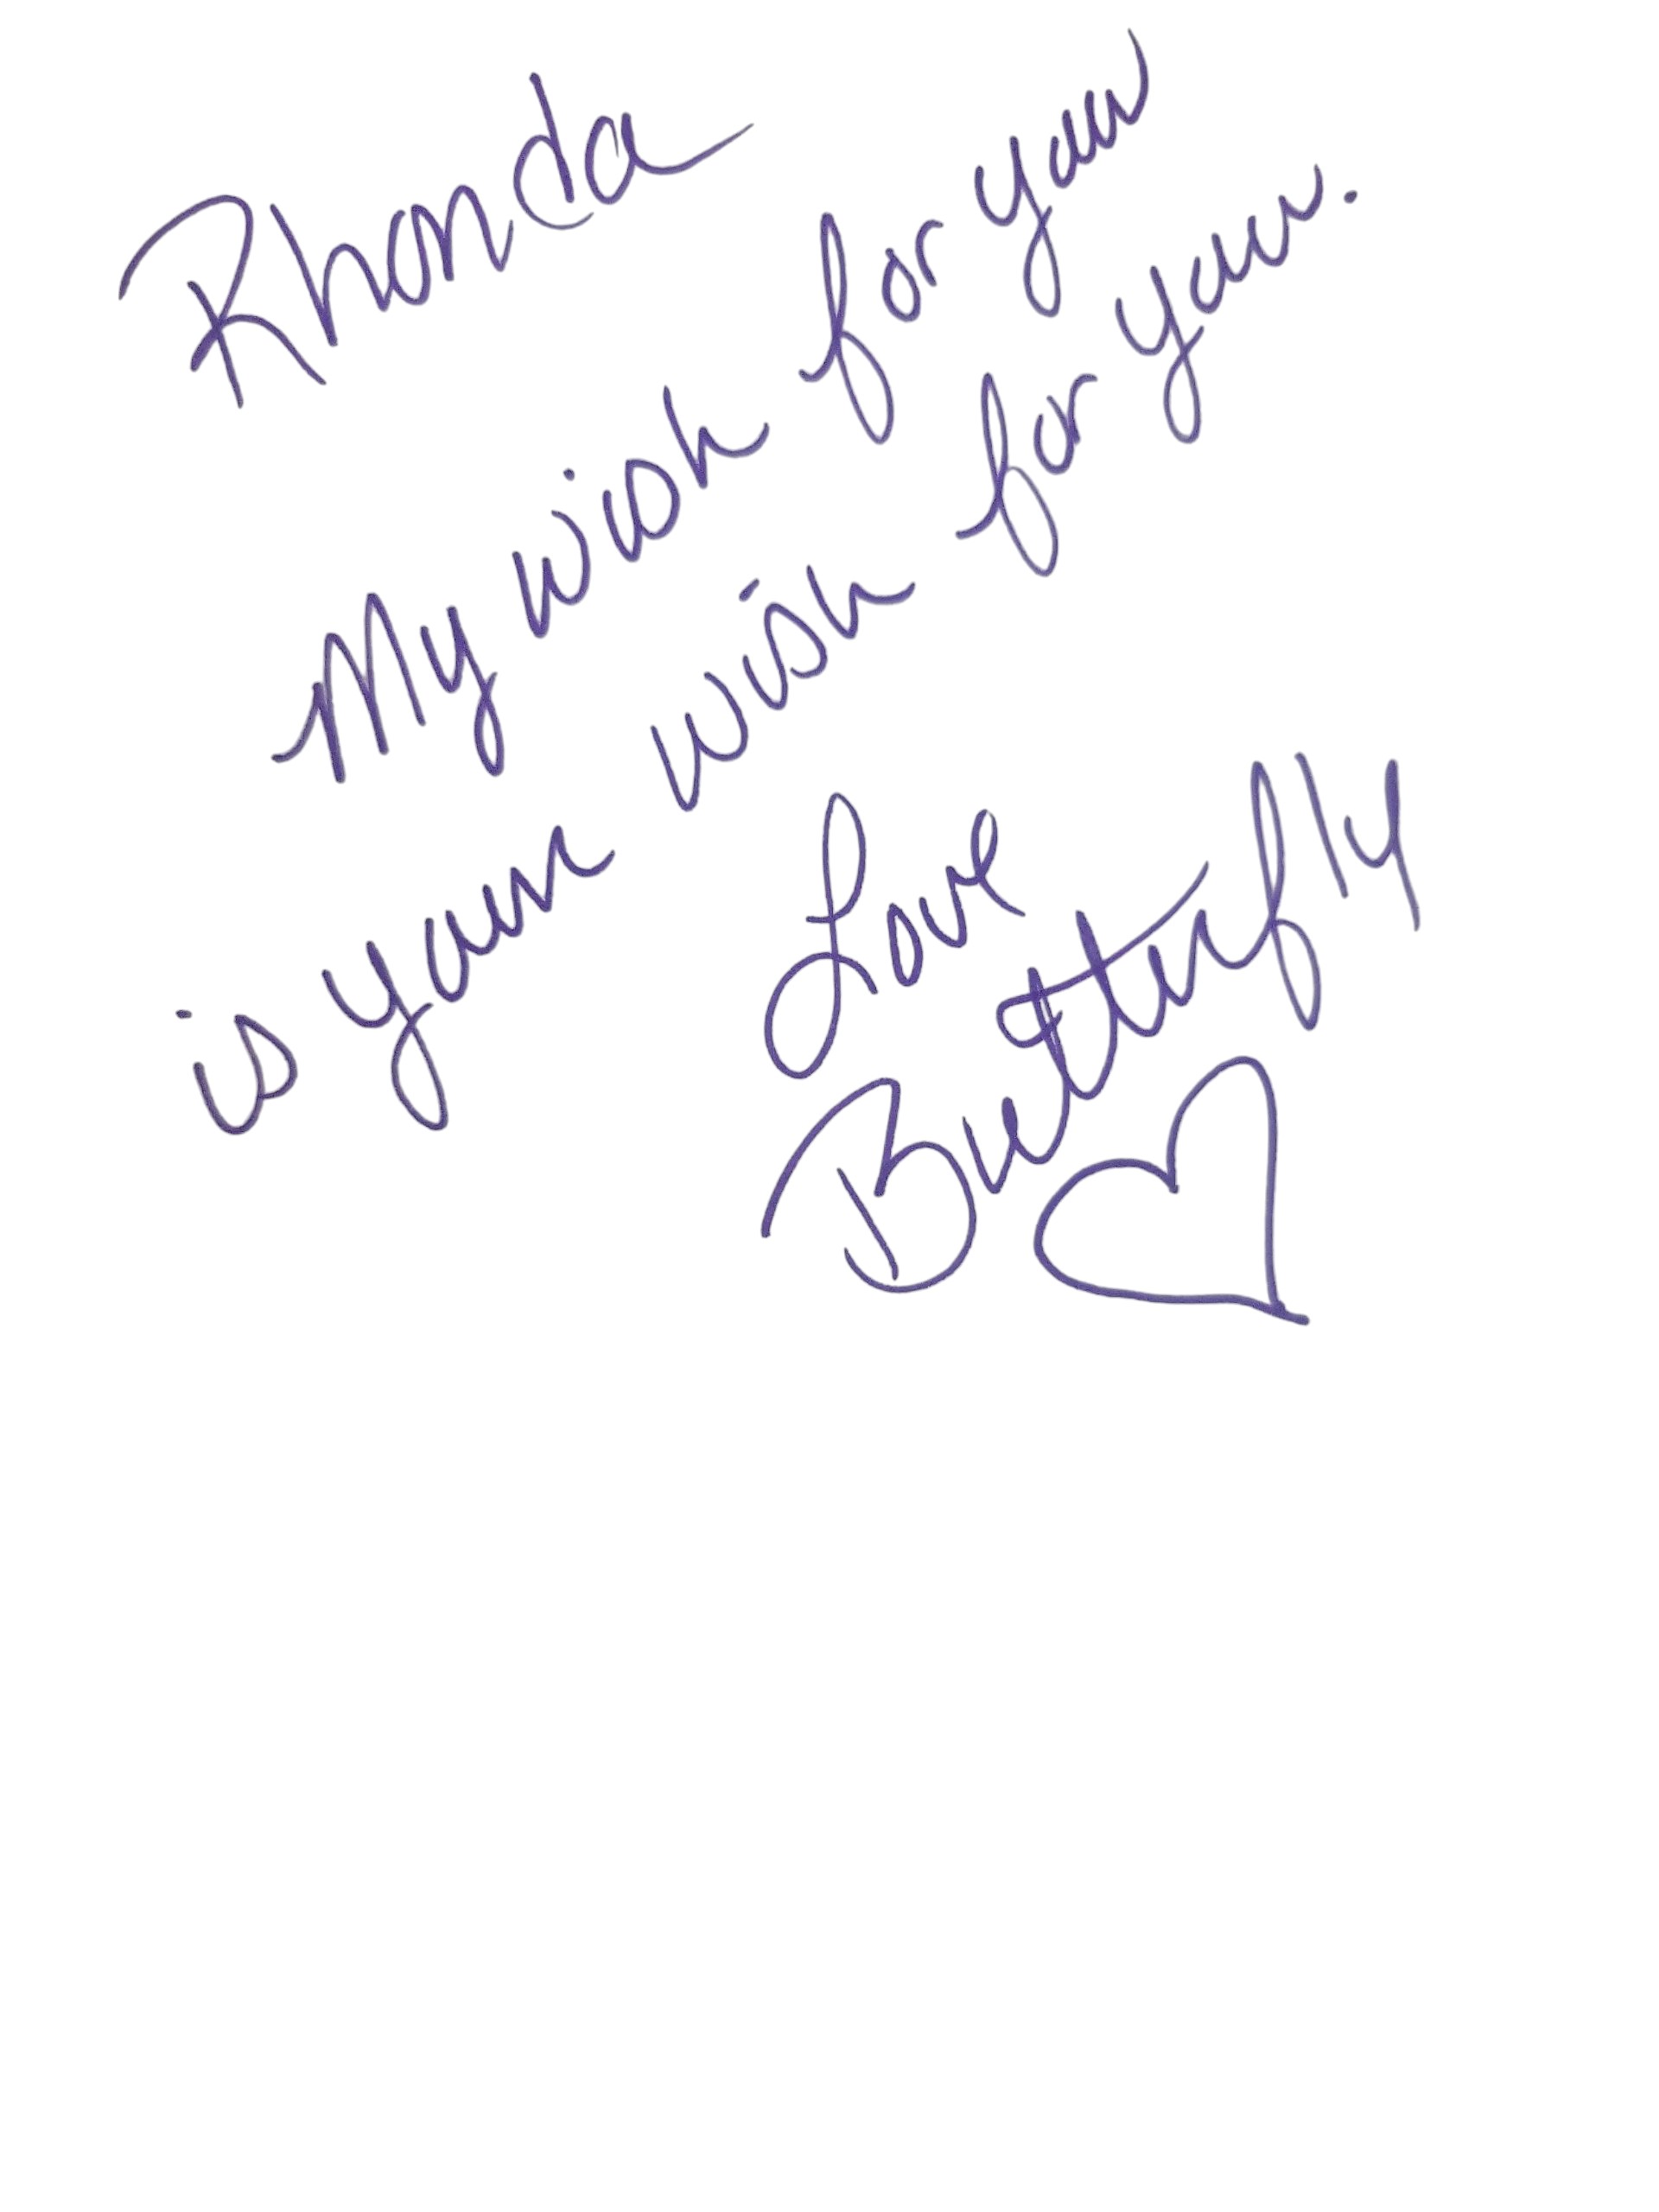 Rhonda
My wish for you
is your wish for you.
Love
Butterfly